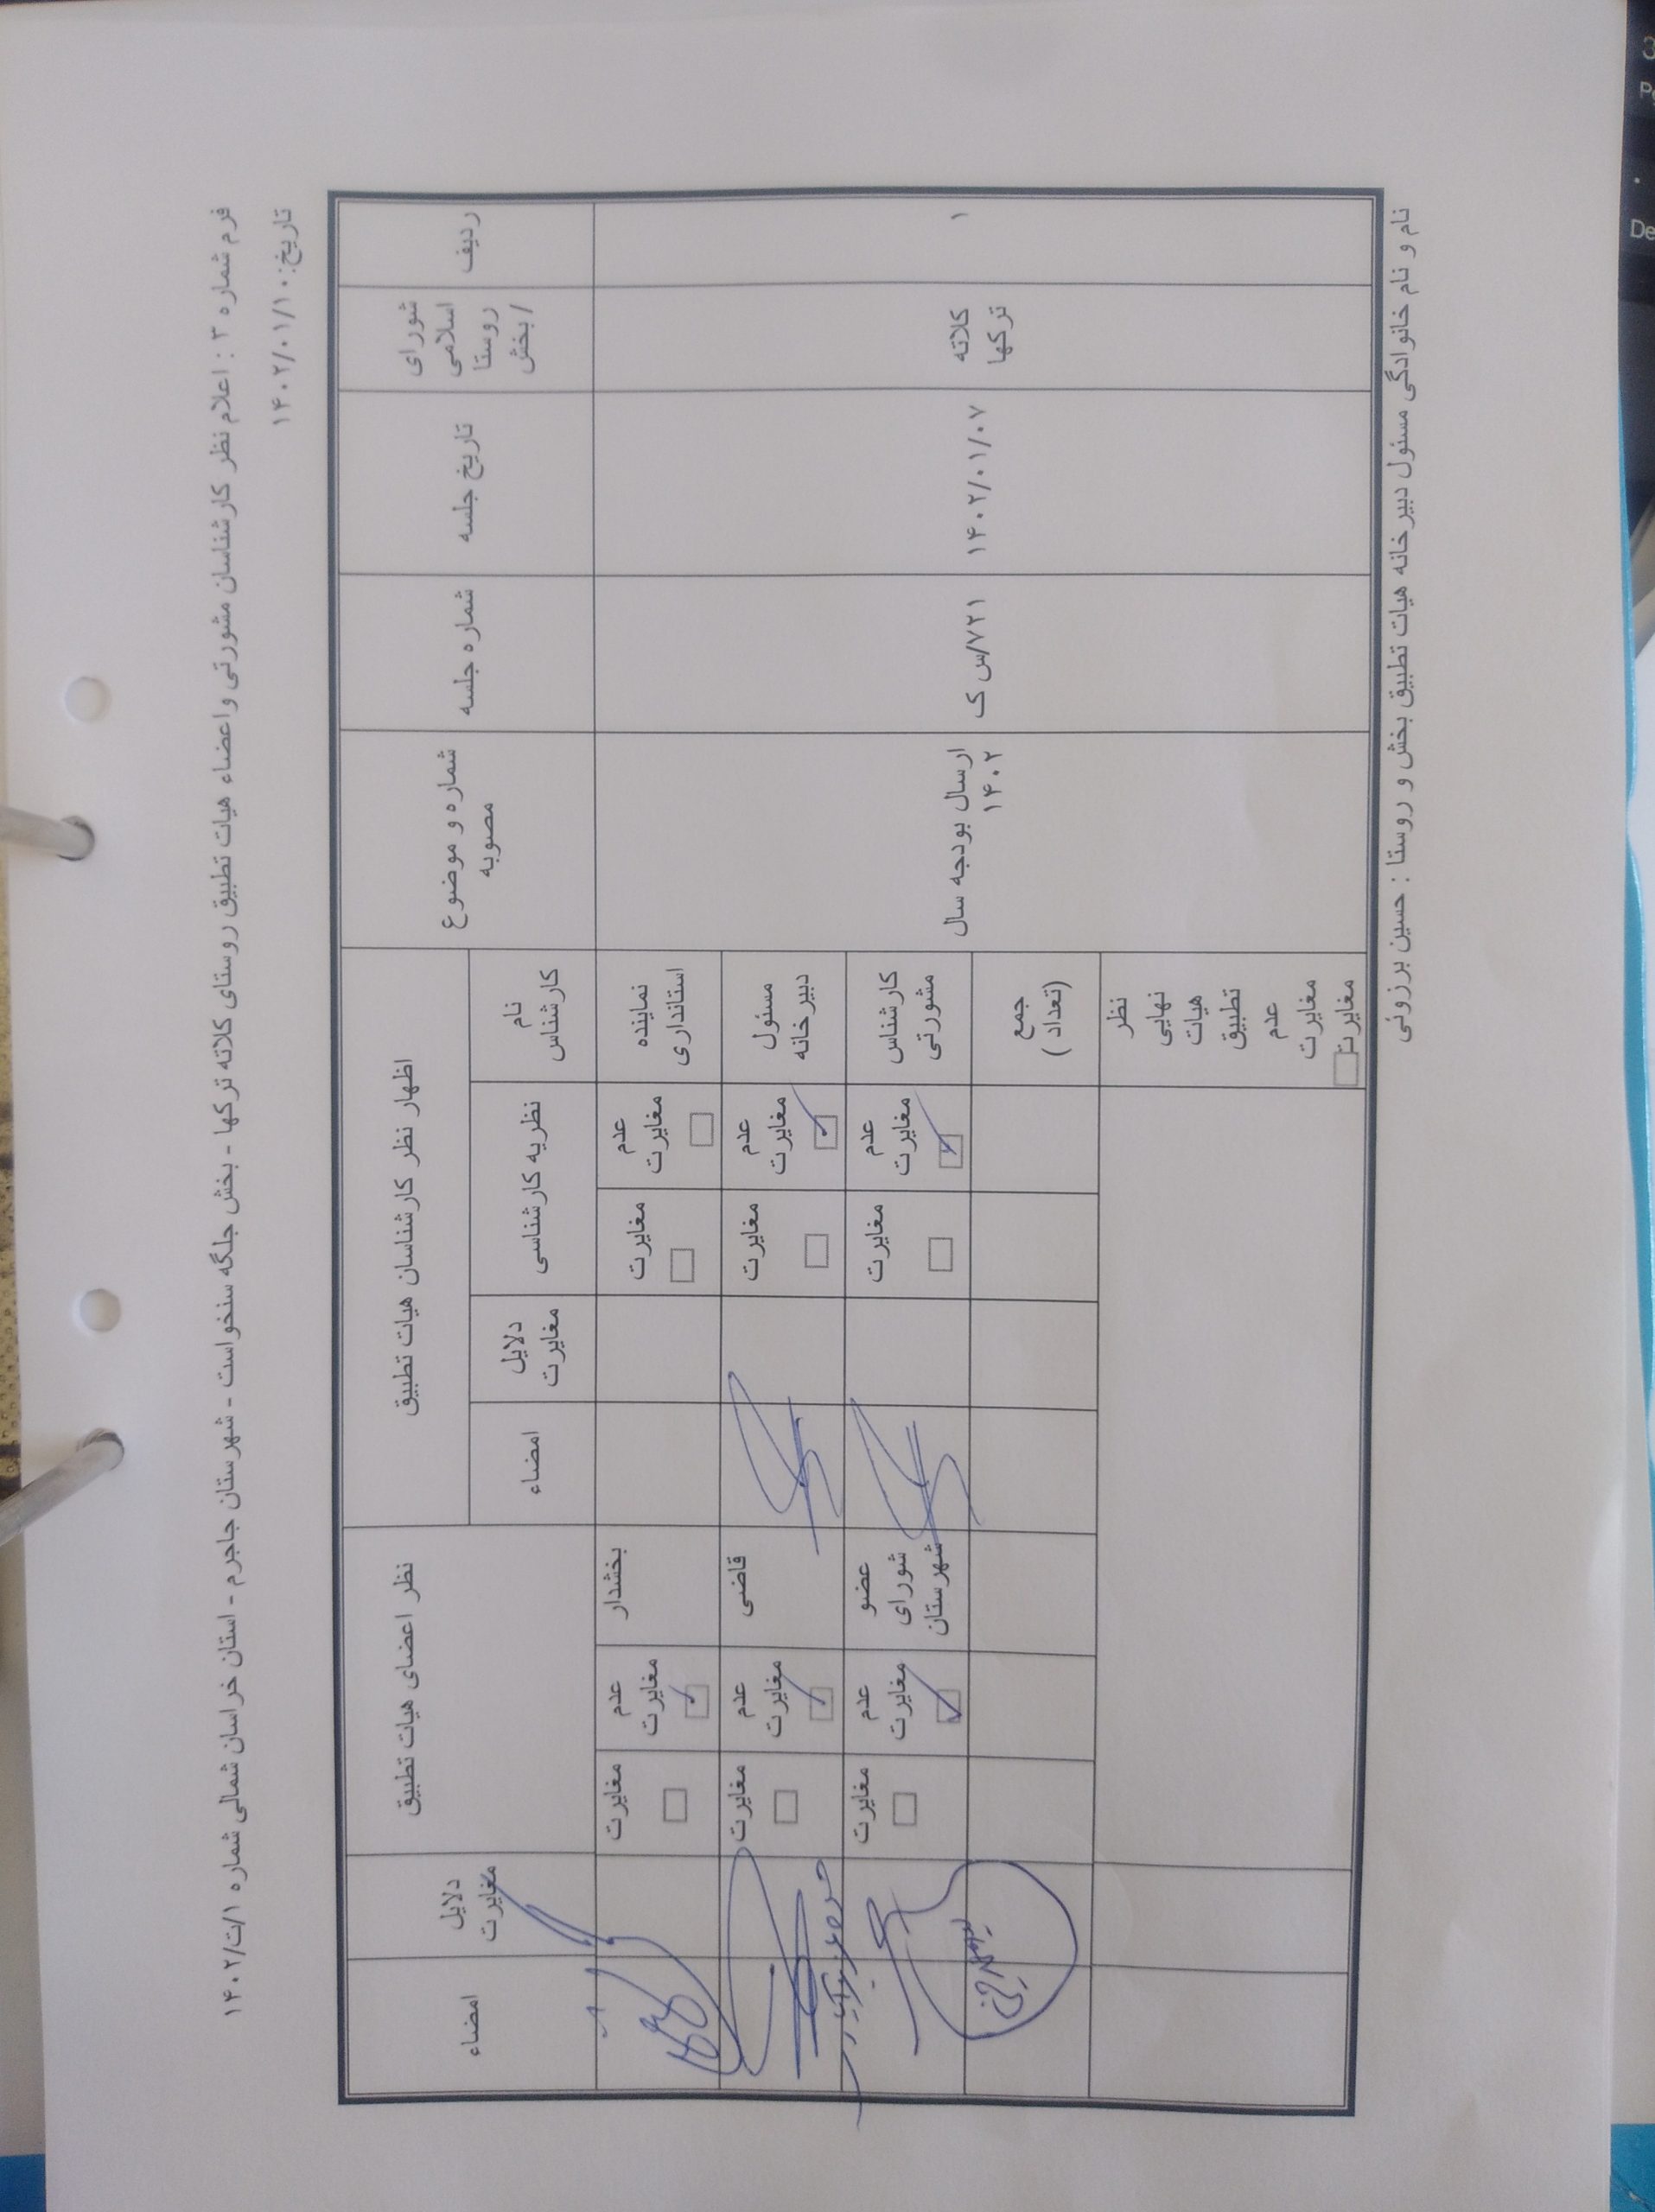 فرم شماره ۳ : اعلام نظر کارشناسان مشورتی و اعضاء هیات تطبیق روستای کلاته ترکها - بخش جلگه سنخواست - شهرستان جاجرم - استان خراسان شمالی شماره ۱/ت/۱۴۰۲
تاریخ: ۱۴۰۲/۰۱/۱۰
ردیف
شورای
اسلامی
روستا
/ بخش
تاریخ جلسه
شماره جلسه
شماره و موضوع
مصوبه
اظهار نظر کارشناسان هیات تطبیق
نظر اعضای هیات تطبیق
دلایل
مغایرت
امضاء
نام
کارشناس
نظریه کارشناسی
دلایل
مغایرت
امضاء
۱
کلاته
ترکها
۱۴۰۲/۰۱/۰۷
۷۲۱/س ک
ارسال بودجه سال
۱۴۰۲
نماینده
استانداری
عدم
مغایرت
مغایرت
بخشدار
عدم
مغایرت
مغایرت
مسئول
دبیرخانه
عدم
مغایرت
مغایرت
قاضی
عدم
مغایرت
مغایرت
کارشناس
مشورتی
عدم
مغایرت
مغایرت
عضو
شورای
شهرستان
عدم
مغایرت
مغایرت
جمع
(تعداد
)
نظر
نهایی
هیات
تطبیق
عدم
مغایرت
مغایرت
نام و نام خانوادگی مسئول دبیرخانه هیات تطبیق بخش و روستا : حسین برزوئی